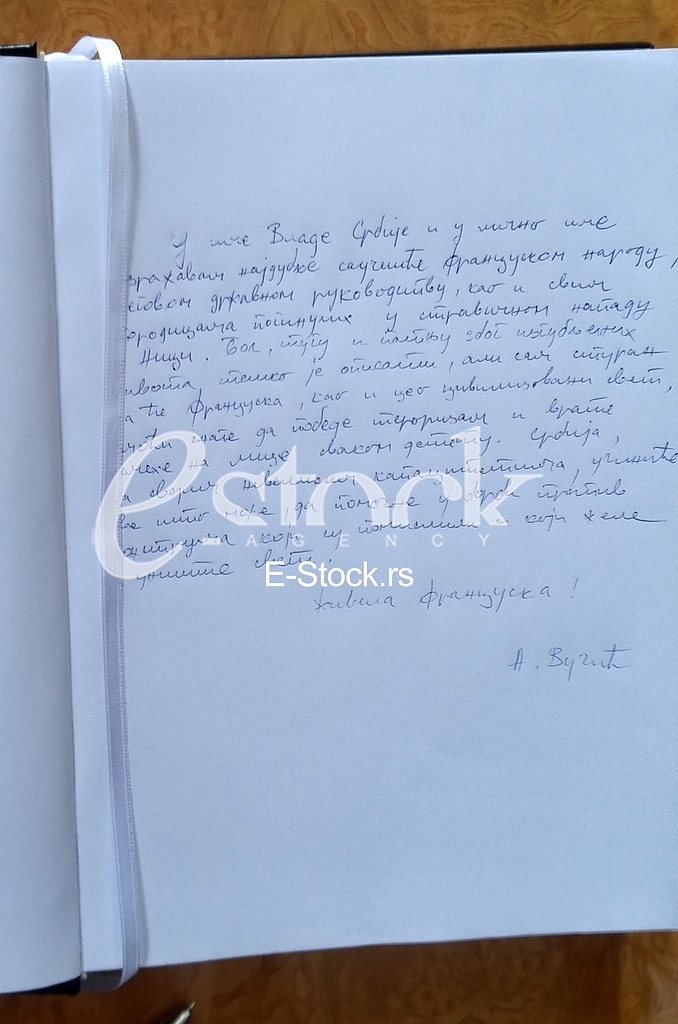 У име Владе Србије и у лично име
зражавам најдубље саучешће француском народу,
његовом државном руководству, као и свим
породицама погинулих у стравичном нападу
Ници. Бол, тугу и патњу због изгубљених
живота, тешко је описати, али сам сигуран
да ће Француска, као и цео цивилизовани свет,
моћи да победе тероризам и врате
на лице сваком детету. Србија,
својим капацитетима, учиниће
све што може, да помогне у борби против
које и који желе
униште свет.
Живела Француска!
А. Вучић
estock
AGENCY
E-Stock.rs